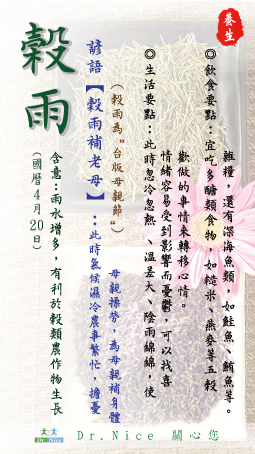 養生
穀雨
(國曆4月20日)
含意:雨水增多,有利於穀類農作物生長
諺語【穀雨補老母】:此時氣候濕冷農事繁忙,擔憂
母親操勞,為母親補身體
(穀雨為"台版母親節")
◎生活要點:此時忽冷忽熱、溫差大、陰雨綿綿,使
情緒容易受到影響而憂鬱,可以找喜
歡做的事情來轉移心情。
◎飲食要點:宜吃多醣類食物,如糙米、燕麥等五穀
雜糧,還有深海魚類,如鮭魚、鮪魚等。
Dr. Nice
Dr.Nice 關心您